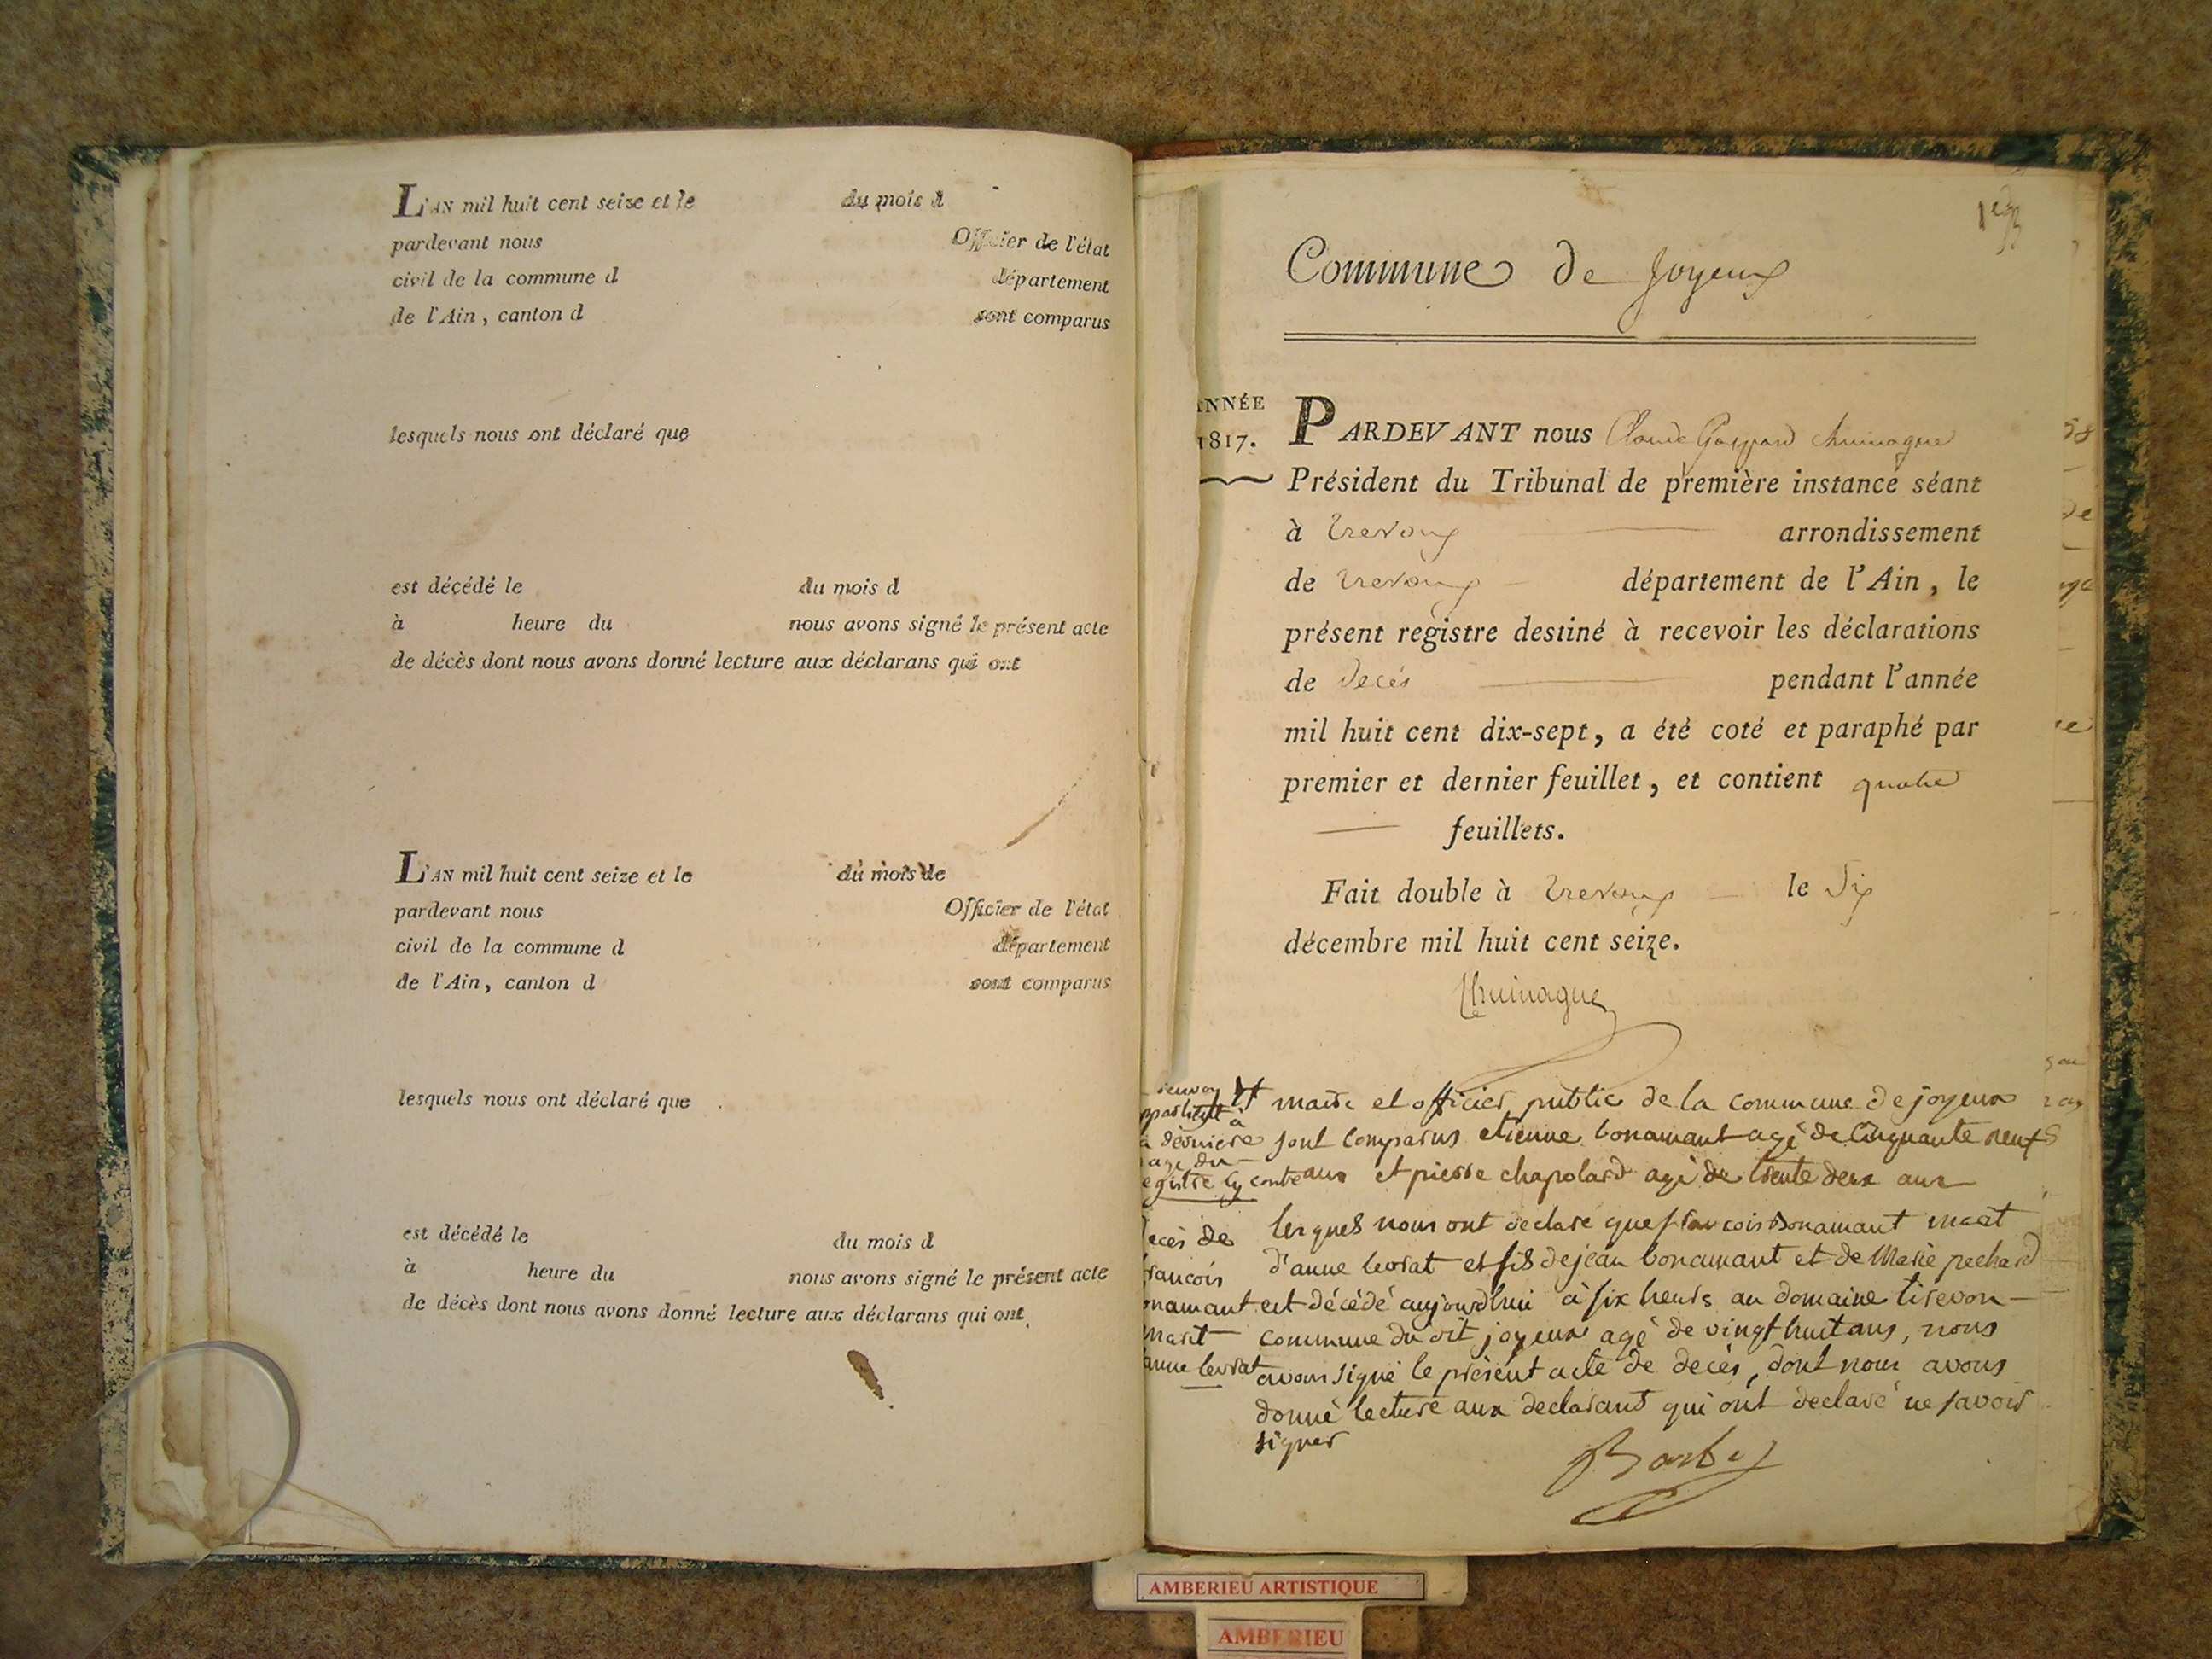 L'AN mil huit cent seize et le du mois d
pardevant nous Officier de l'état
civil de la commune d département
de l'Ain, canton d sont comparus
lesquels nous ont déclaré que
est décédé le du mois d
à heure du nous avons signé le présent acte
de décès dont nous avons donné lecture aux déclarans qui ont
L'AN mil huit cent seize et le du mois de
pardevant nous Officier de l'état
civil de la commune d département
de l'Ain, canton d sont comparus
lesquels nous ont déclaré que
est décédé le du mois d
à heure du nous avons signé le présent acte
de décès dont nous avons donné lecture aux déclarans qui ont
1er
Commune de Joyeux
ANNÉE
1817.
PARDEVANT nous Claude Gaspard
Président du Tribunal de première instance séant
à Trevoux arrondissement
de Trevoux département de l'Ain, le
présent registre destiné à recevoir les déclarations
de Decés pendant l'année
mil huit cent dix-sept, a été coté et paraphé par
premier et dernier feuillet, et contient quatre
feuillets.
Fait double à Trevoux le Six
décembre mil huit cent seize.
renvoy
à
a derniere
page du
egistre cy contre
maire et officier public de la commune de joyeux
sont comparus etienne bonamant agé de Cinquante neuf
ans et pierre chapolard agé de trente deux ans
lesquels nous ont declaré que francois Bonamant
d'anne levrat et fils de jean bonamant et de Marie pechard
est décédé aujourdhui à six heurs au domaine tirevon
commune du dit joyeux agé de vingt huit ans, nous
avons signé le présent acte de decès, dont nous avons
donné lecture aux declarants qui ont declaré ne savoir
signer
ecès de
francois
onamant
anne levrat
Barbey
AMBERIEU ARTISTIQUE
AMBERIEU